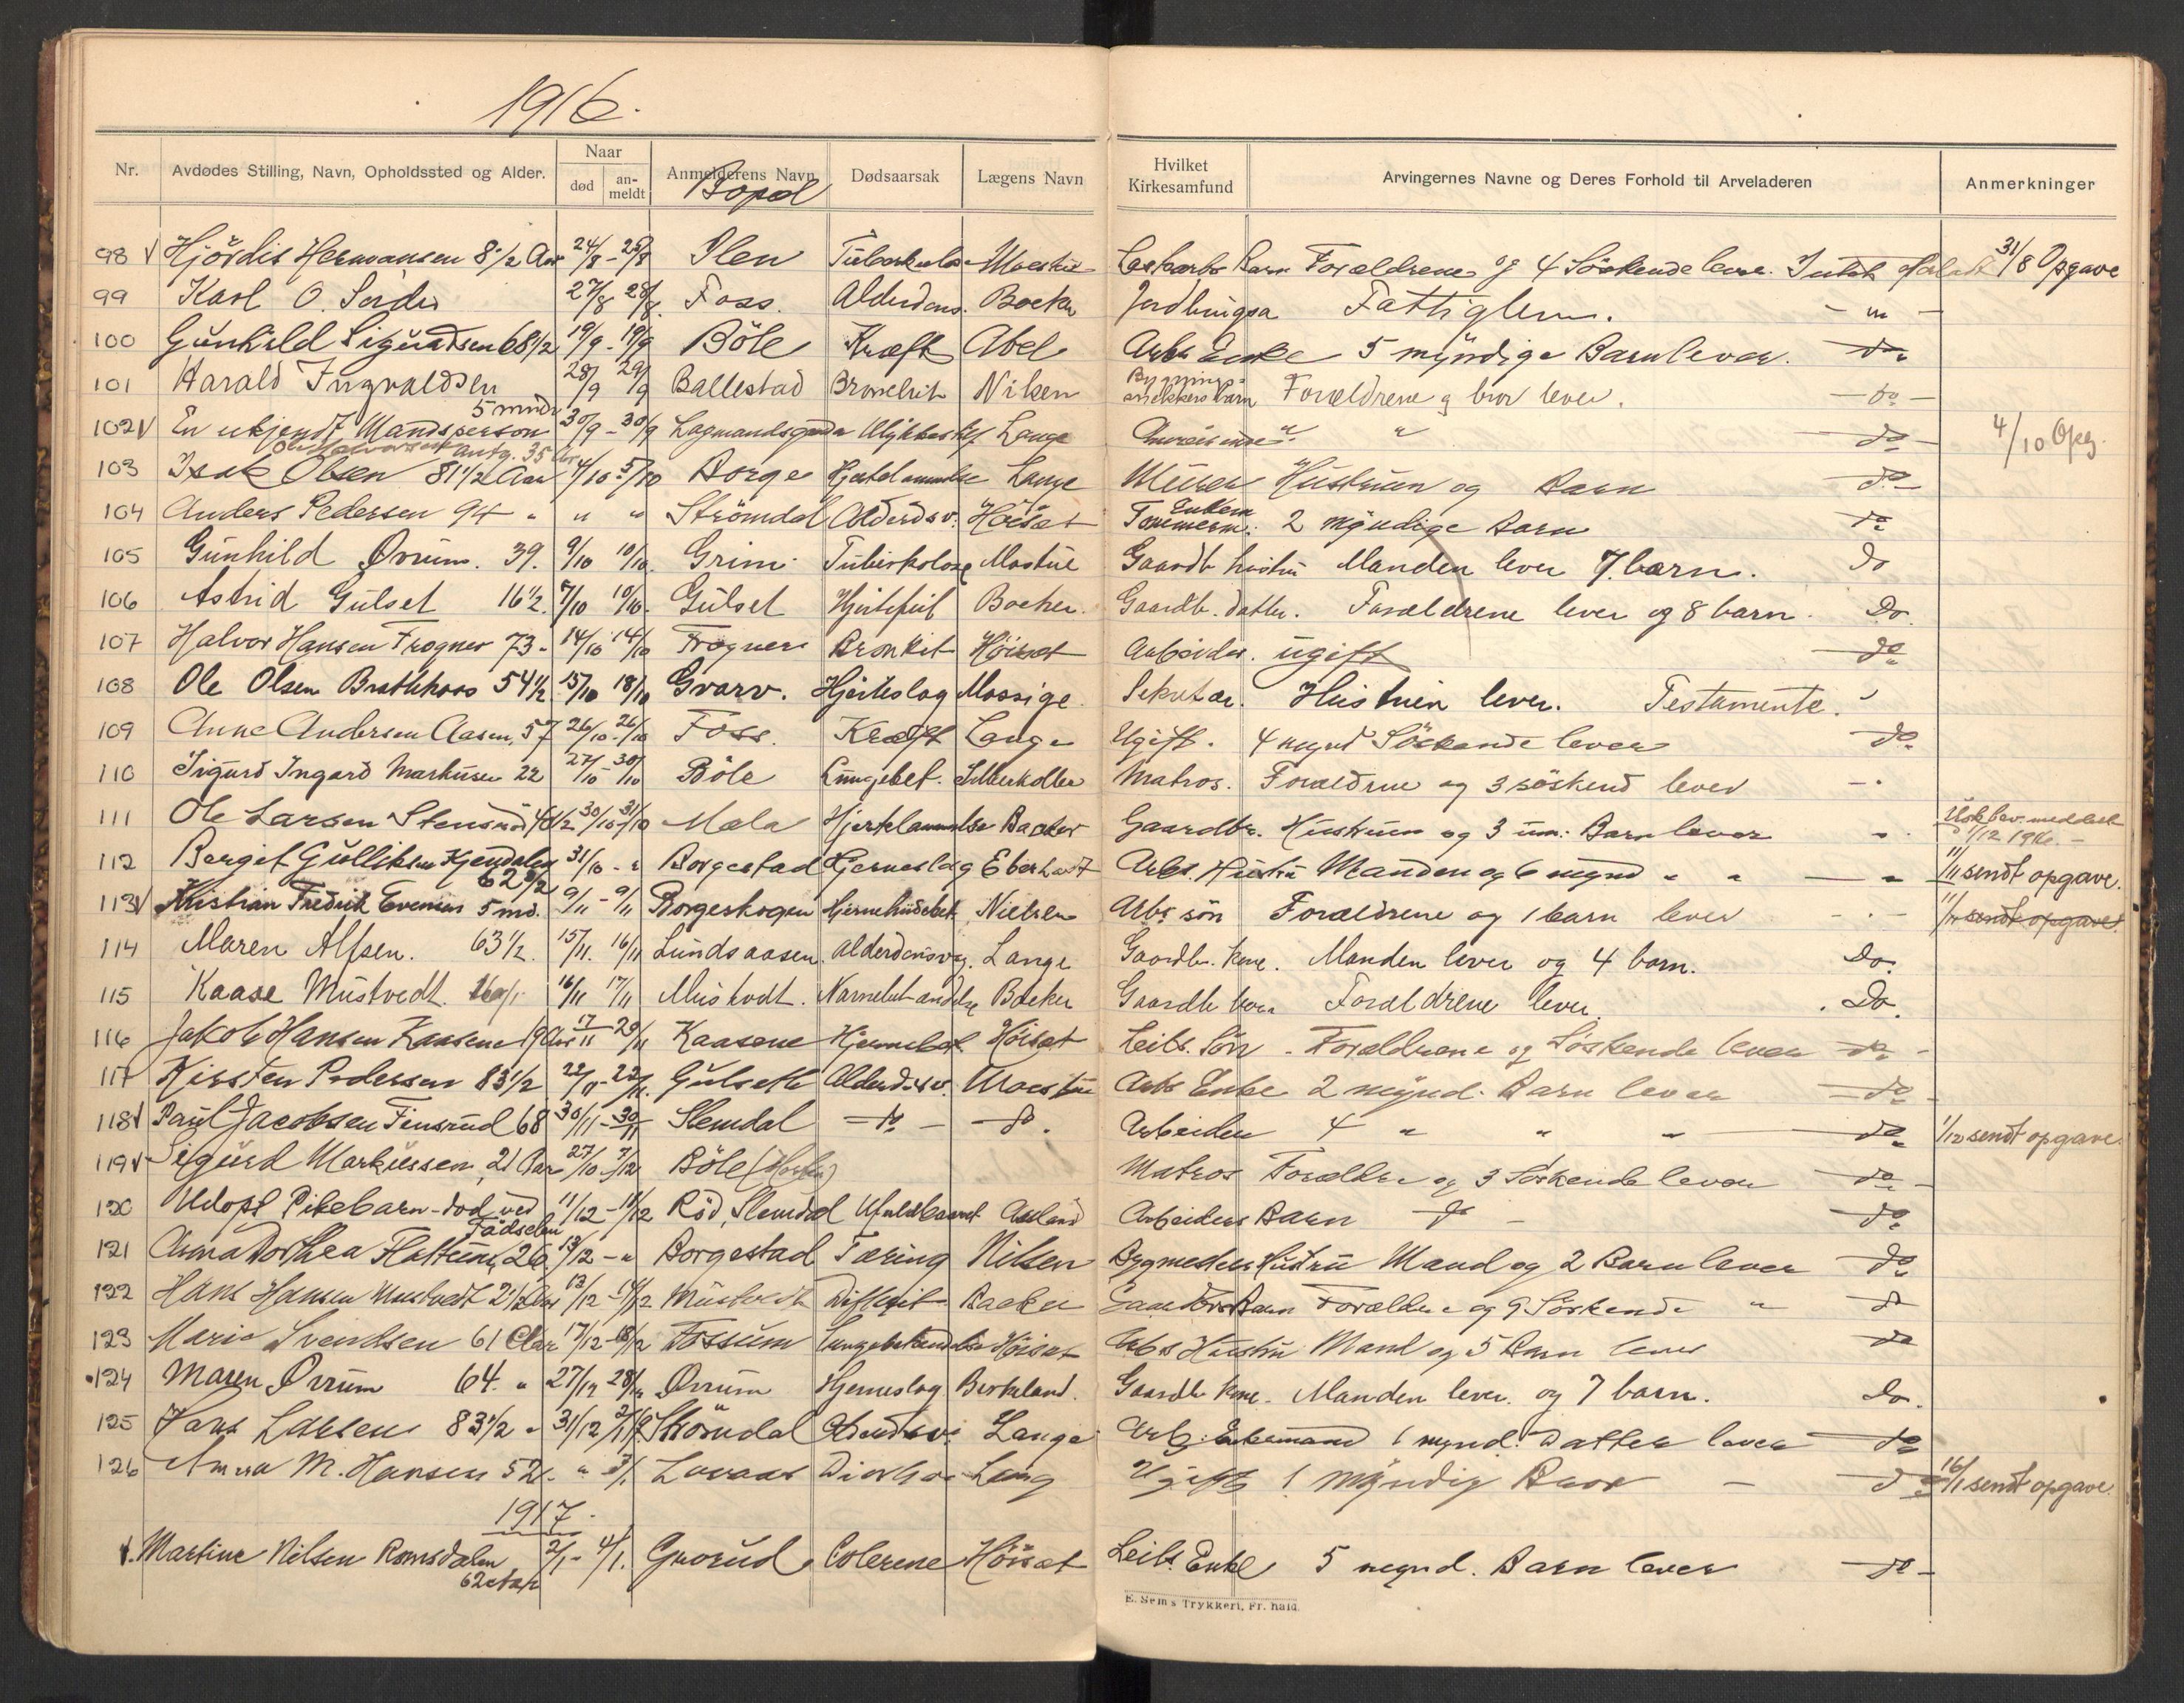 1916.
Nr. Avdødes Stilling, Navn, Opholdssted og Alder. Naar død an-meldt Anmelderens Navn Bopæl Dødsaarsak Lægens Navn Hvilket Kirkesamfund Arvingernes Navne og Deres Forhold til Arveladeren Anmerkninger
98 V Hjördis Hermansen 8 1/2 Aar 24/8 - 25/8 Ilen Barn Forældrene og 4 Söskende lever. Intet 31/8 Opgave
99 Karl O. 27/8 28/8. Foss. Alderdoms. Backer Fattiglem.
100 Gunhild 68 1/2 19/9 - 19/9 Böle Kræft Abel Arbs Enke 5 myndige Barn lever. do
101 Harald Ingvaldsen 5 mndr 28/9 29/9 Ballestad Bronchit Bygnings- barn Forældrene og bror lever. - do -
102 V En ukjendt Mandsperson antg. 35 Aar 30/9 - 30/9 Lange " " - do - 4/10 Opg.
103 Isak Olsen 81 1/2 Aar 4/10 - 5/10 Borge Hjertelammelse Lange Murer Hustruen og Barn do -
104 Anders Pedersen 94 " " " Strömdal Alderdsv. Höisæt Tømmerm. Enkem 2 myndige Barn do
105 Gunhild Ørum. 39. 9/10 10/10. Grini Tuberkolose Mostue Gaardb hustru Manden lever 7 barn. do
106 Astrid Gulset 16 1/2. 7/10 10/10. Gulset Hjertefeil Backer. Gaardb. datter. Forældrene lever og 8 barn. Do.
107 Halvor Hansen Frogner 73 - 14/10 14/10 Frogner Bronkit Höisæt Arbeider. ugift do
108 Ole Olsen Brattekaas 54 1/2 15/10 18/10 Gvarv. Hjerteslag Mossige. Sekretær. Hustruen lever. Testamente.
109 Anne Andersen Aasen, 57 26/10 - 26/10 Foss. Kræft Lange Ugift. 4 mynd Söskende lever do
110 Sigurd Ingard Markusen 22 27/10 - 30/10 Böle Lungebet. Matros. Forældrene og 3 söskend lever - "
111 Ole Larsen Stensrud 48 1/2 30/10 - 31/10 Mæla Hjertelammelse Backer Gaardbr. Hustruen og 3 um: Barn lever " meddelt 1/12 1916. -
112 Berget Gulliksen 62 1/2 31/10 - " Borgestad Hjerneslag Eberhardt Arbs. Hustru Manden og 6 mynd " " — " 11/11 sendt opgave.
113 V Kristian Fredrik Evensen 5 md. 9/11 - 9/11 Borgeskogen Hjernehindebet. Nielsen Arbs sön Forældrene og 1 barn lever - " - 11/11 sendt opgave.
114 Maren Alfsen. 63 1/2. 15/11. 16/11 Lundsaasen. Alderdomsvg. Lange Gaardb. kone. Manden lever og 4 barn. Do.
115 Kaase Mustvedt. 16/11 17/11 Mustvedt. Backer Gaardb barn Forældrene lever. Do.
116 Jakob Hansen Kaasene 19 Aar 17/11 - 29/11 Kaasene Hjernebet. Höisæt Leils. Sön - Forældrene og Söskende lever do -
117 Kirsten Pedersen 83 1/2 22/11 - 23/11. Gulseth Alderdsv. Moestue Arbs Enke 2 mynd. Barn lever - do -
118 V Paul Jacobsen Finsrud 68 30/11 - 30/11 Slemdal - do - - do. Arbeider 4 " " " do 1/12 sendt opgave.
119 V Sigurd Markussen, 21 Aar 27/10 - 7/12 Böle Matros Forælder og 3 Söskende lever do -
120 Udöpt Pikebarn - död ved Födselen 11/12 - 11/12 Röd, Slemdal Ufuldbaaret Aaland Arbeiders Barn do - do
121 Anna Dorthea Flattum, 26 13/12 - " Borgestad Tæring Nilsen Bygmesters Hustru Mand og 2 Barn lever do
122 Hans Hansen Mustvedt 2 1/2 Aar 13/12 - 14/12 Mustvedt Difterit Backer Barn Forældre og 9 Söskende " do
123 Marie Svendsen 61 Aar 17/12 - 18/12 Fossum Lungebetændelse Höisæt Arbs Hustru Mand og 5 Barn lever do
124 Maren Ørum 64. " 27/12 - 28/12 Ørum Hjerneslag Berkeland. Gaardb kone. Manden lever. og 7 barn. do.
125 Hans Larsen 83 1/2 " 31/12 2/1 17 Strömdal Alderdsv. Lange Arb. Enkemand 1 mynd. Datter lever do
126 Anna M. Hansen 52. " " 3/1. Lovaas Lang Ugift 1 Myndig Barn - do 16/1 sendt opgave.
1917.
V. Martine Nilsen Romsdalen 62 Aar 2/1 - 4/1. Grorud Colerene Höisæt Leils. Enke 5 mynd. Barn lever do -
E. Sem's Trykkeri, Fr.hald.